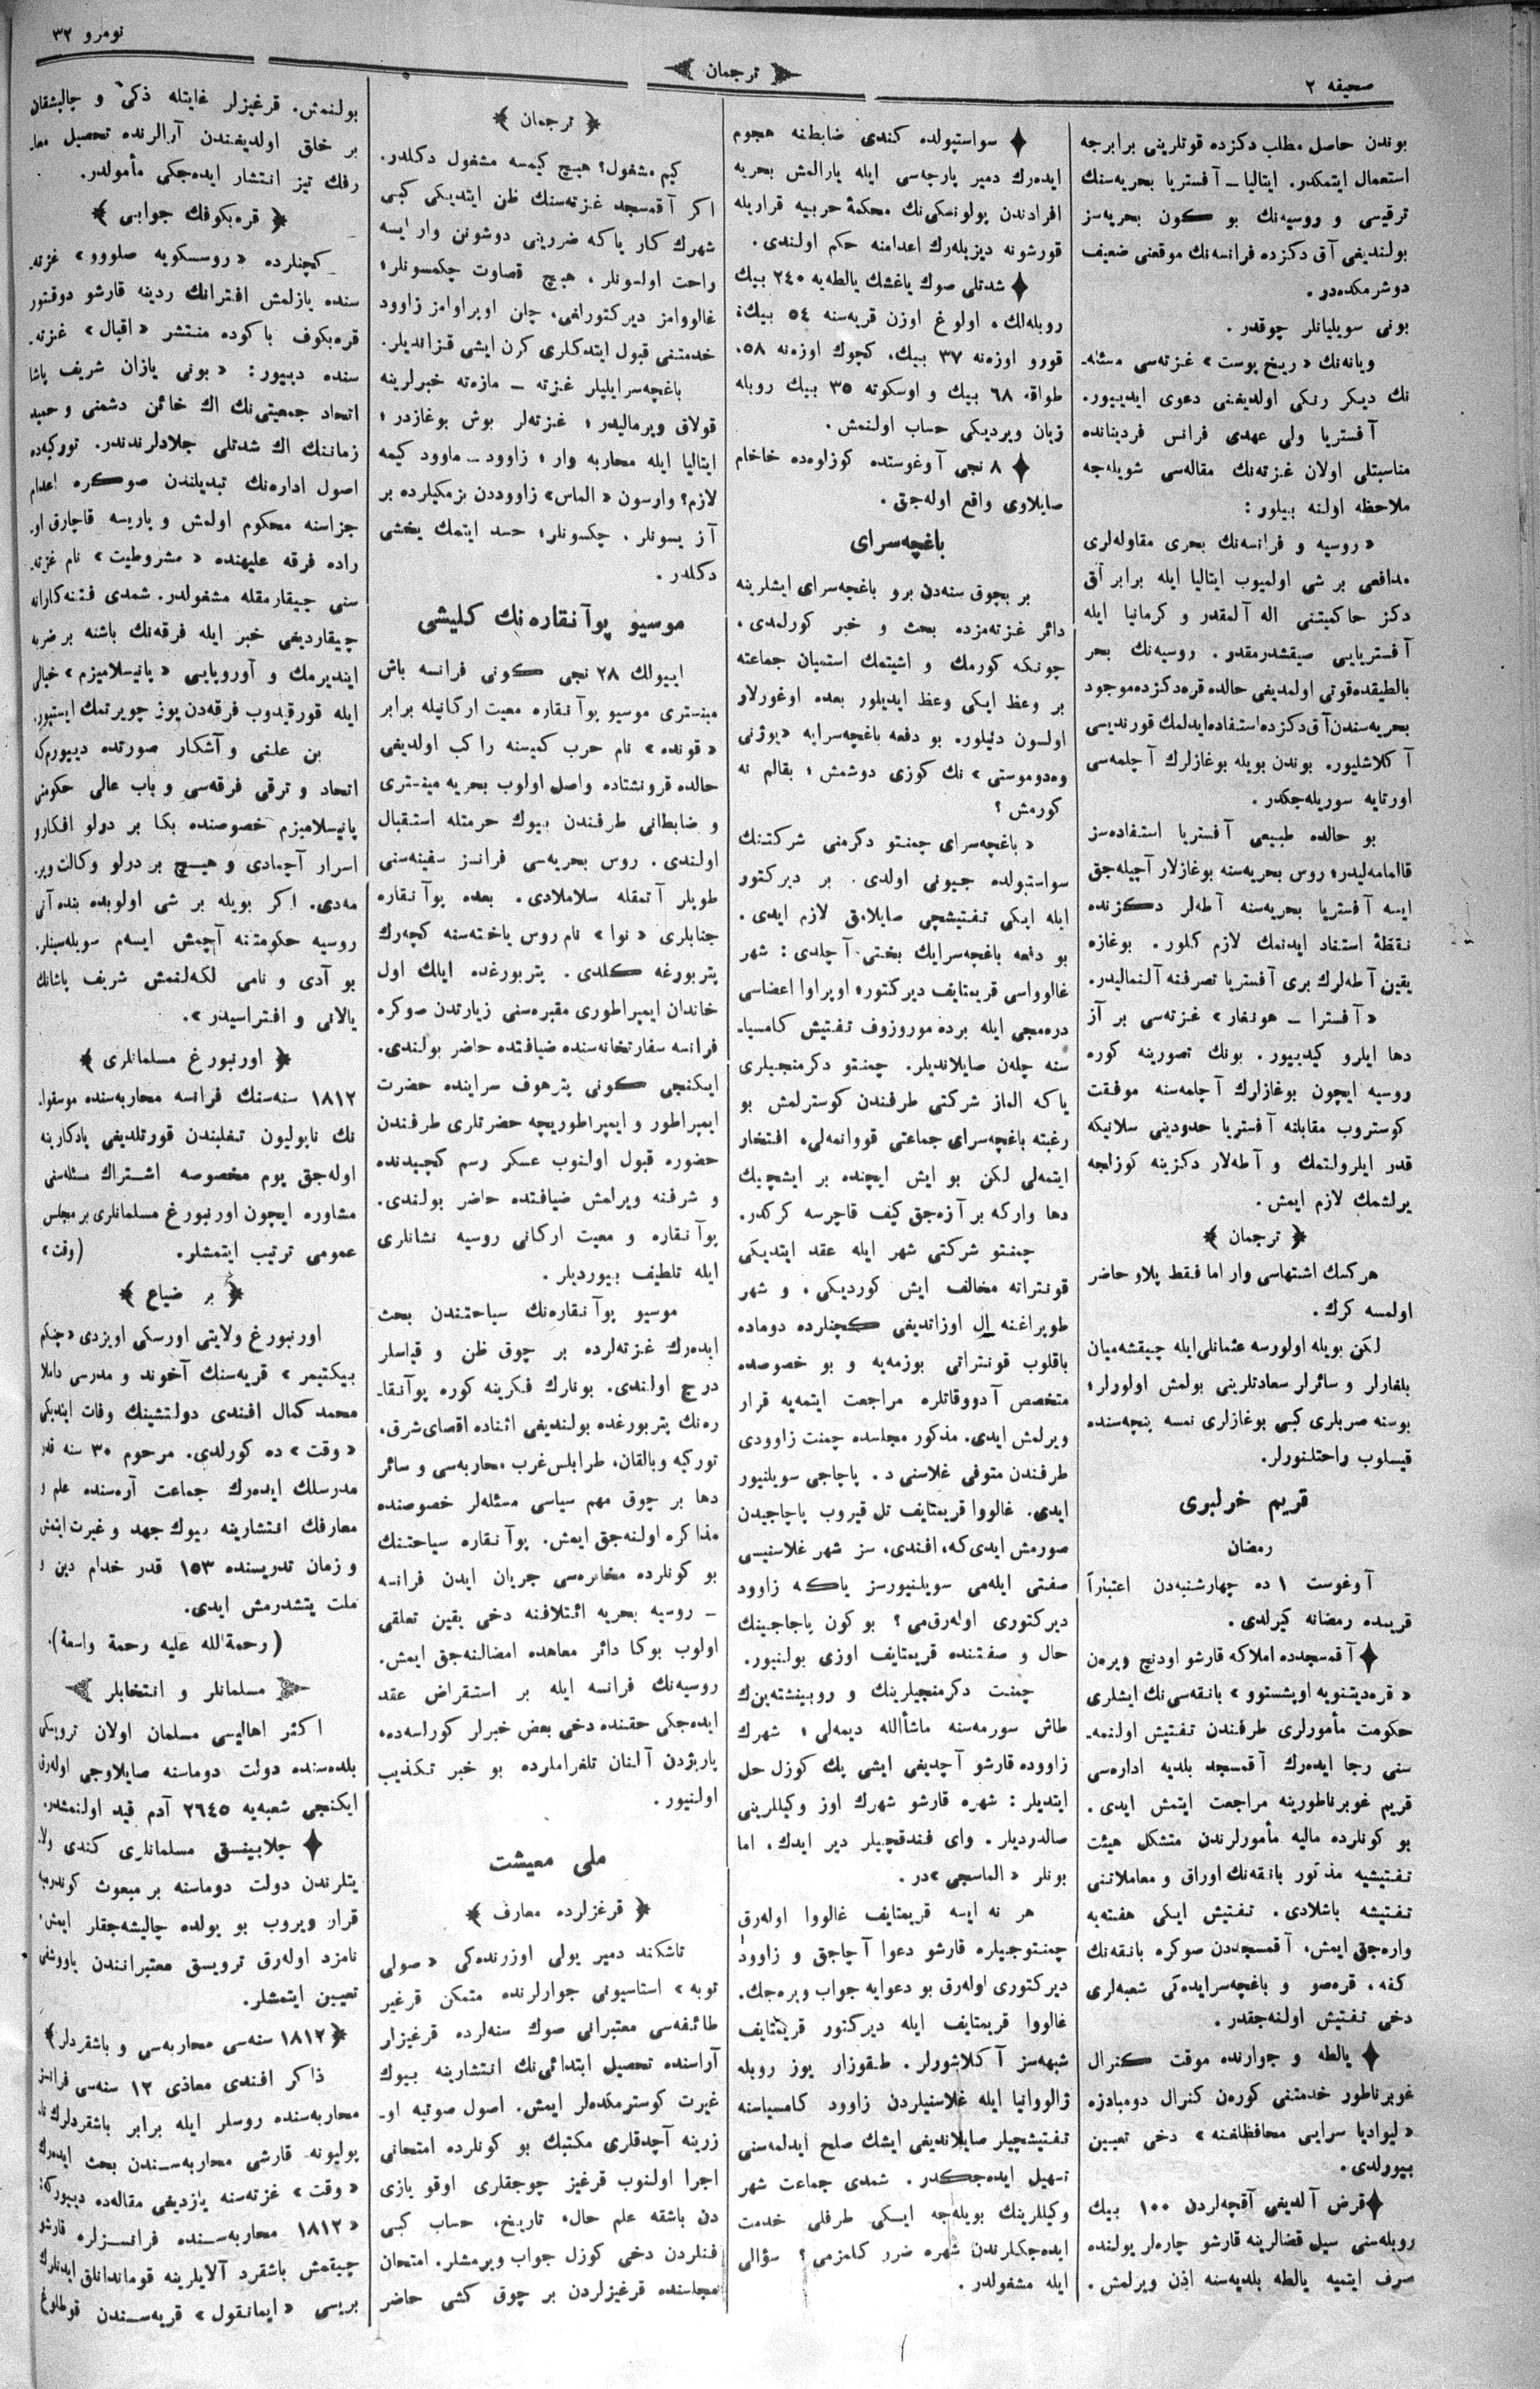 صحيفه ٢
ترجمان
نومرو ٣٢
بوندن حاصل مطلب دكزده قوتلرينى برابرجه
استعمال ايتمكدر. ايتاليا ــ آفستريا بحريه‌سنك
ترقيسى و روسيه‌نك بو كون بحريه‌سز
بولنديغى آق دكزده فرانسه‌نك موقعنى ضعيف
دوشرمكده‌در.
بونى سويليانلر چوقدر.
ويانه‌نك «ريخ پوست» غزته‌سى مسئله‌ـ
نك ديكر رنكى اولديغنى دعوى ايدييور.
آفستريا ولى عهدى فرانس فرديناننده
مناسبتلى اولان غزته‌نك مقاله‌سى شويله‌جه
ملاحظه اولنه بيلور:
«روسيه و فرانسه‌نك بحرى مقاوله‌لرى
مدافعى بر شى اولميوب ايتاليا ايله برابر آق
دكز حاكميتنى اله آلمقدر و كرمانيا ايله
آفستريايى صيقشدرمقدر. روسيه‌نك بحر
بالطيقده‌قوتى اولمديغى حالده قره‌دكزده‌موجود
بحريه‌سندن آق دكزده استفاده‌ايدلمك قورنديسى
آكلاشليور. بوندن بويله بوغازلرك آچلمه‌سى
اورتايه سوريله‌جكدر.
بو حالده طبيعى آفستريا استفاده‌سز
قالمامه‌ليدر؛ روس بحريه‌سنه بوغازلار آچيله‌جق
ايسه آفستريا بحريه‌سنه آطه‌لر دكزنده
نقطهٔ استناد ايدنمك لازم كلور. بوغازه
يقين آطه‌لرك برى آفستريا تصرفنه آلنماليدر.
«آفسترا ــ هونغار» غزته‌سى بر آز
دها ايلرو كيدييور. بونك تصورينه كوره
روسيه ايچون بوغازلرك آچلمه‌سنه موفقت
كوستروب مقابلنه آفستريا حدودينى سلانيكه
قدر ايلرولتمك و آطه‌لار دكزينه كوزلجه
يرلشمك لازم ايمش.
﴿ ترجمان ﴾
هركسك اشتهاسى وار اما فقط پلاو حاضر
اولمسه كرك.
لكن بويله اولورسه عثمانلى ايله چيقشه‌ميان
بلغارلر و سائرلر سعادتلرينى بولمش اولورلر؛
بوسنه صربلرى كبى بوغازلرى نمسه پنچه‌سنده
قيسلوب راحتلنورلر.
قريم خبرلرى
رمضان
آوغوست ١ ده چهارشنبه‌دن اعتبارا
قريمده رمضانه كيرلدى.
آقمسجدده املاكه قارشو اودنچ ويره‌ن
«قره‌ديتنويه اوبشستوو» بانقه‌سى‌نك ايشلرى
حكومت مأمورلرى طرفندن تفتيش اولنمه‌ـ
سنى رجا ايده‌رك آقمسجد بلديه اداره‌سى
قريم غوبرناطورينه مراجعت ايتمش ايدى.
بو كونلرده ماليه مأمورلرندن متشكل هيئت
تفتيشيه مذكور بانقه‌نك اوراق و معاملاتنى
تفتيشه باشلادى. تفتيش ايكى هفته‌يه
واره‌جق ايمش. آقمسجددن صوكره بانقه‌نك
كفه، قره‌صو و باغچه‌سرايده‌كى شعبه‌لرى
دخى تفتيش اولنه‌جقدر.
يالطه و جوارنده موقت كنرال
غوبرناطور خدمتنى كوره‌ن كنرال دومبادزه
«ليواديا سرايى محافظلغنه» دخى تعيين
بيورلدى.
قرض آلديغى آقچه‌لردن ١٠٠ بيك
روبله‌سنى سيل قضالرينه قارشو چاره‌لر يولنده
صرف ايتميه يالطه بلديه‌سنه اذن ويرلمش.
سواستپولده كندى ضابطنه هجوم
ايده‌رك دمير پارچه‌سى ايله يارالمش بحريه
افرادندن پولونسكى‌نك محكمهٔ حربيه قراريله
قورشونه ديزيله‌رك اعدامنه حكم اولندى.
شدتلى صوك ياغشك يالطه‌يه ٢٤٠ بيك
روبله‌لك، اولوغ اوزن قريه‌سنه ٥٤ بيك؛
قورو اوزه‌نه ٣٧ بيك، كچوك اوزه‌نه ٥٨،
طواقه ٦٨ بيك و اوسكوته ٣٥ بيك روبله
زيان ويرديكى حساب اولنمش.
٨ نجى آوغوستده كوزلوه‌ده خاخام
صايلاوى واقع اوله‌جق.
باغچه‌سراى
بر بچوق سنه‌دن برو باغچه‌سراى ايشلرينه
دائر غزته‌مزده بحث و خبر كورلمدى.
چونكه كورمك و اشيتمك استميان جماعته
بر وعظ ايكى وعظ ايديلور بعده اوغورلار
اولسون دنيلور. بو دفعه باغچه‌سرايه «يوژنى
وه‌دوموستى» نك كوزى دوشمش؛ بقالم نه
كورمش؟
«باغچه‌سراى چمنتو دكرمنى شركتنك
سواستپولده جيونى اولدى. بر ديركتور
ايله ايكى تفتيشچى صايلامق لازم ايدى.
بو دفعه باغچه‌سرايك بختى آچلدى: شهر
غالوواسى قريمتايف ديركتور؛ اوپراوا اعضاسى
دره‌مجى ايله برده موروزوف تفتيش كامسياـ
سنه چله‌ن صايلانديلر. چمنتو دكرمنجيلرى
ياكه الماز شركتى طرفندن كوسترلمش بو
رغبته باغچه‌سراى جماعتى قووانمه‌لى، افتخار
ايتمه‌لى لكن بو ايش ايچنده بر ايشچيك
دها واركه بر آزه‌جق كيف قاچرسه كركدر.
چمنتو شركتى شهر ايله عقد ايتديكى
قونتراته مخالف ايش كورديكى، و شهر
طوپراغنه ال اوزاتديغى كچنلرده دوماده
باقلوب قونتراتى بوزمه‌يه و بو خصوصده
متخصص آدووقاتلره مراجعت ايتمه‌يه قرار
ويرلمش ايدى. مذكور مجلسده چمنت زاوودى
طرفندن متوفى غلاسنى د. پاچاجى سويلنيور
ايدى. غالووا قريمتايف تل قيروب پاچاجيدن
صورمش ايدى‌كه، افندى، سز شهر غلاسنيسى
صفتى ايله‌مى سويلنيورسز ياكه زاوود
ديركتورى اوله‌رق‌مى؟ بو كون پاچاجينك
حال و صفتنده قريمتايف اوزى بولنيور.
چمنت دكرمنجيلرينك و روبينشته‌ين‌ك
طاش سورمه‌سنه ماشاألله ديمه‌لى؛ شهرك
زاووده قارشو آچديغى ايشى پك كوزل حل
ايتديلر: شهره قارشو شهرك اوز وكيللرينى
صالدرديلر. واى فندقچيلر دير ايدك، اما
بونلر «الماسجى»در.
هر نه ايسه قريمتايف غالووا اوله‌رق
چمنتوجيلره قارشو دعوا آچاجق و زاوود
ديركتورى اوله‌رق بو دعوايه جواب ويره‌جك.
غالووا قريمتايف ايله ديركتور قريمتايف
شبهه‌سز آكلاشورلر. طقوزار يوز روبله
ژالووانيا ايله غلاسنيلردن زاوود كامسياسنه
تفتيشچيلر صايلانديغى ايشك صلح ايدلمه‌سنى
تسهيل ايده‌جكدر. شمدى جماعت شهر
وكيللرينك بويله‌جه ايكى طرفلى خدمت
ايده‌جكلرندن شهره ضرر كلمزمى؟ سؤالى
ايله مشغولدر.
﴿ ترجمان ﴾
كيم مشغول؟ هيچ كيمسه مشغول دكلدر.
اكر آقمسجد غزته‌سنك ظن ايتديكى كبى
شهرك كار ياكه ضررينى دوشونن وار ايسه
راحت اولسونلر، هيچ قصاوت چكمسونلر؛
غالووامز ديركتورلغى، چلن اوپراوامز زاوود
خدمتنى قبول ايتدكلرى كرن ايشى قزانديلر.
باغچه‌سرايليلر غزته ــ مازه‌ته خبرلرينه
قولاق ويرماليدر؛ غزته‌لر بوش بوغازدر؛
ايتاليا ايله محاربه وار؛ زاوود ــ ماوود كيمه
لازم؟ وارسون «الماس» زاووددن بزمكيلرده بر
آز يسونلر. چكسونلر؛ حسد ايتمك يخشى
دكلدر.
موسيو پوآنقاره‌نك كليشى
ايبولك ٢٨ نجى كونى فرانسه باش
مينسترى موسيو پوآنقاره معيت اركانيله برابر
«قونده» نام حرب كميسنه راكب اولديغى
حالده قرونشتاده واصل اولوب بحريه مينسترى
و ضابطانى طرفندن بيوك حرمتله استقبال
اولندى. روس بحريه‌سى فرانسز سفينه‌سنى
طوپلر آتمقله سلاملادى. بعده پوآنقاره
جنابلرى «نوا» نام روس ياختەسنه كچه‌رك
پتربورغه كلدى. پتربورغده ايلك اول
خاندان ايمپراطورى مقبره‌سنى زيارتدن صوكره
فرانسه سفارتخانه‌سنده ضيافتده حاضر بولندى.
ايكنجى كونى پترهوف سراينده حضرت
ايمپراطور و ايمپراطوريچه حضرتلرى طرفندن
حضوره قبول اولنوب عسكر رسم كچيدنده
و شرفنه ويرلمش ضيافتده حاضر بولندى.
پوآنقاره و معيت اركانى روسيه نشانلرى
ايله تلطيف بيورديلر.
موسيو پوآنقاره‌نك سياحتندن بحث
ايده‌رك غزته‌لرده بر چوق ظن و قياسلر
درج اولندى. بونلرك فكرينه كوره پوآنقاـ
ره‌نك پتربورغده بولنديغى اثناده اقصاى شرق،
توركيه و بالقان، طرابلس غرب محاربه‌سى و سائر
دها بر چوق مهم سياسى مسئله‌لر خصوصنده
مذاكره اولنه‌جق ايمش. پوآنقاره سياحتنك
بو كونلرده مخابره‌سى جريان ايدن فرانسه
ــ روسيه بحريه ائتلافنه دخى يقين تعلقى
اولوب بوكا دائر معاهده امضالنه‌جق ايمش.
روسيه‌نك فرانسه ايله بر استقراض عقد
ايده‌جكى حقنده دخى بعض خبرلر كوراسه‌ده،
پاريژدن آلنان تلغراملرده بو خبر تكذيب
اولنيور.
ملى معيشت
﴿ قرغزلرده معارف ﴾
تاشكند دمير يولى اوزرنده‌كى «صولى
توبه» استاسيونى جوارلرنده متمكن قرغيز
طائفه‌سى معتبرانى صوك سنه‌لرده قرغيزلر
آراسنده تحصيل ابتدائى‌نك انتشارينه بيوك
غيرت كوسترمكده‌لر ايمش. اصول صوتيه اوـ
زرينه آچدقلرى مكتبك بو كونلرده امتحانى
اجرا اولنوب قرغيز چوجقلرى اوقو يازى
دن باشقه علم حال، تاريخ، حساب كبى
فنلردن دخى كوزل جواب ويرمشلر. امتحان
مجلسنده قرغيزلردن بر چوق كشى حاضر
بولنمش. قرغيزلر غايتله ذكى و چاليشقان
بر خلق اولديغندن آرالرنده تحصيل معاـ
رفك تيز انتشار ايده‌جكى مأمولدر.
﴿ قره‌بكوفك جوابى ﴾
كچنلرده «روسسكويه صلووو» غزته‌ـ
سنده يازلمش افترانك ردينه قارشو دوقتور
قره‌بكوف باكوده منتشر «اقبال» غزته‌ـ
سنده ديييور: «بونى يازان شريف پاشا
اتحاد جمعيتى‌نك اك خائن دشمنى و حميد
زماننك اك شدتلى جلادلرندندر. توركيه‌ده
اصول اداره‌نك تبديلندن صوكره اعدام
جزاسنه محكوم اولمش و پاريسه قاچارق اوـ
راده فرقه عليهنده «مشروطيت» نام غزته‌ـ
سنى چيقارمقله مشغولدر. شمدى فتنه‌كارانه
چيقارديغى خبر ايله فرقه‌نك باشنه بر ضربه
اينديرمك و آوروپايى «پانيسلاميزم» خيالى
ايله قورقيدوب فرقه‌دن يوز چويرتمك ايستيور.
بن علنى و آشكار صورتده ديييورم‌كه
اتحاد و ترقى فرقه‌سى و باب عالى حكومتى
پانيسلاميزم خصوصنده بكا بر درلو افكار و
اسرار آچمادى و هيچ بر درلو وكالت ويرـ
مه‌دى. اكر بويله بر شى اولوبده بنده آنى
روسيه حكومتنه آچمش ايسه‌م سويله‌سينلر.
بو آدى و نامى لكه‌لنمش شريف پاشانك
يالانى و افتراسيدر».
﴿ اورنبورغ مسلمانلرى ﴾
١٨١٢ سنه‌سنك فرانسه محاربه‌سنده موسقواـ
نك ناپوليون تغلبندن قورتلديغى يادكارينه
اوله‌جق يوم مخصوصه اشتراك مسئله‌سنى
مشاوره ايچون اورنبورغ مسلمانلرى بر مجلس
عمومى ترتيب ايتمشلر. (وقت)
﴿ بر ضياع ﴾
اورنبورغ ولايتى اورسكى اويزدى «چنكم
بيكتيمر» قريه‌سنك آخوند و مدرسى داملا
محمد كمال افندى دولتشينك وفات ايتديكى
«وقت» ده كورلدى. مرحوم ٣٠ سنه قدر
مدرسلك ايده‌رك جماعت آره‌سنده علم و
معارفك انتشارينه بيوك جهد و غيرت ايتمش
و زمان تدريسنده ١٥٣ قدر خدام دين و
ملت يتشدرمش ايدى.
(رحمة الله عليه رحمة واسعة).
مسلمانلر و انتخابلر
اكثر اهاليسى مسلمان اولان ترويسكى
بلده‌سنده دولت دوماسنه صايلاوجى اوله‌رق
ايكنجى شعبه‌يه ٢٦٤٥ آدم قيد اولنمشدر.
چلابينسق مسلمانلرى كندى ولاـ
يتلرندن دولت دوماسنه بر مبعوث كوندرميه
قرار ويروب بو يولده چاليشه‌جقلر ايمش؛
نامزد اوله‌رق ترويسق معتبرانندن ياووشفى
تعيين ايتمشلر.
﴿١٨١٢ سنه‌سى محاربه‌سى و باشقردلر﴾
ذاكر افندى معاذى ١٢ سنه‌سى فرانسز
محاربه‌سنده روسلر ايله برابر باشقردلرك ناـ
پوليونه قارشى محاربه‌سندن بحث ايده‌رك
«وقت» غزته‌سنه يازديغى مقاله‌ده ديييوركه:
«١٨١٢ محاربه‌سنده فرانسزلره قارشو
چيقمش باشقرد آلايلرينه قوماندانلق ايدنلرك
بريسى «ايمانقول» قريه‌سندن قوطلوغ